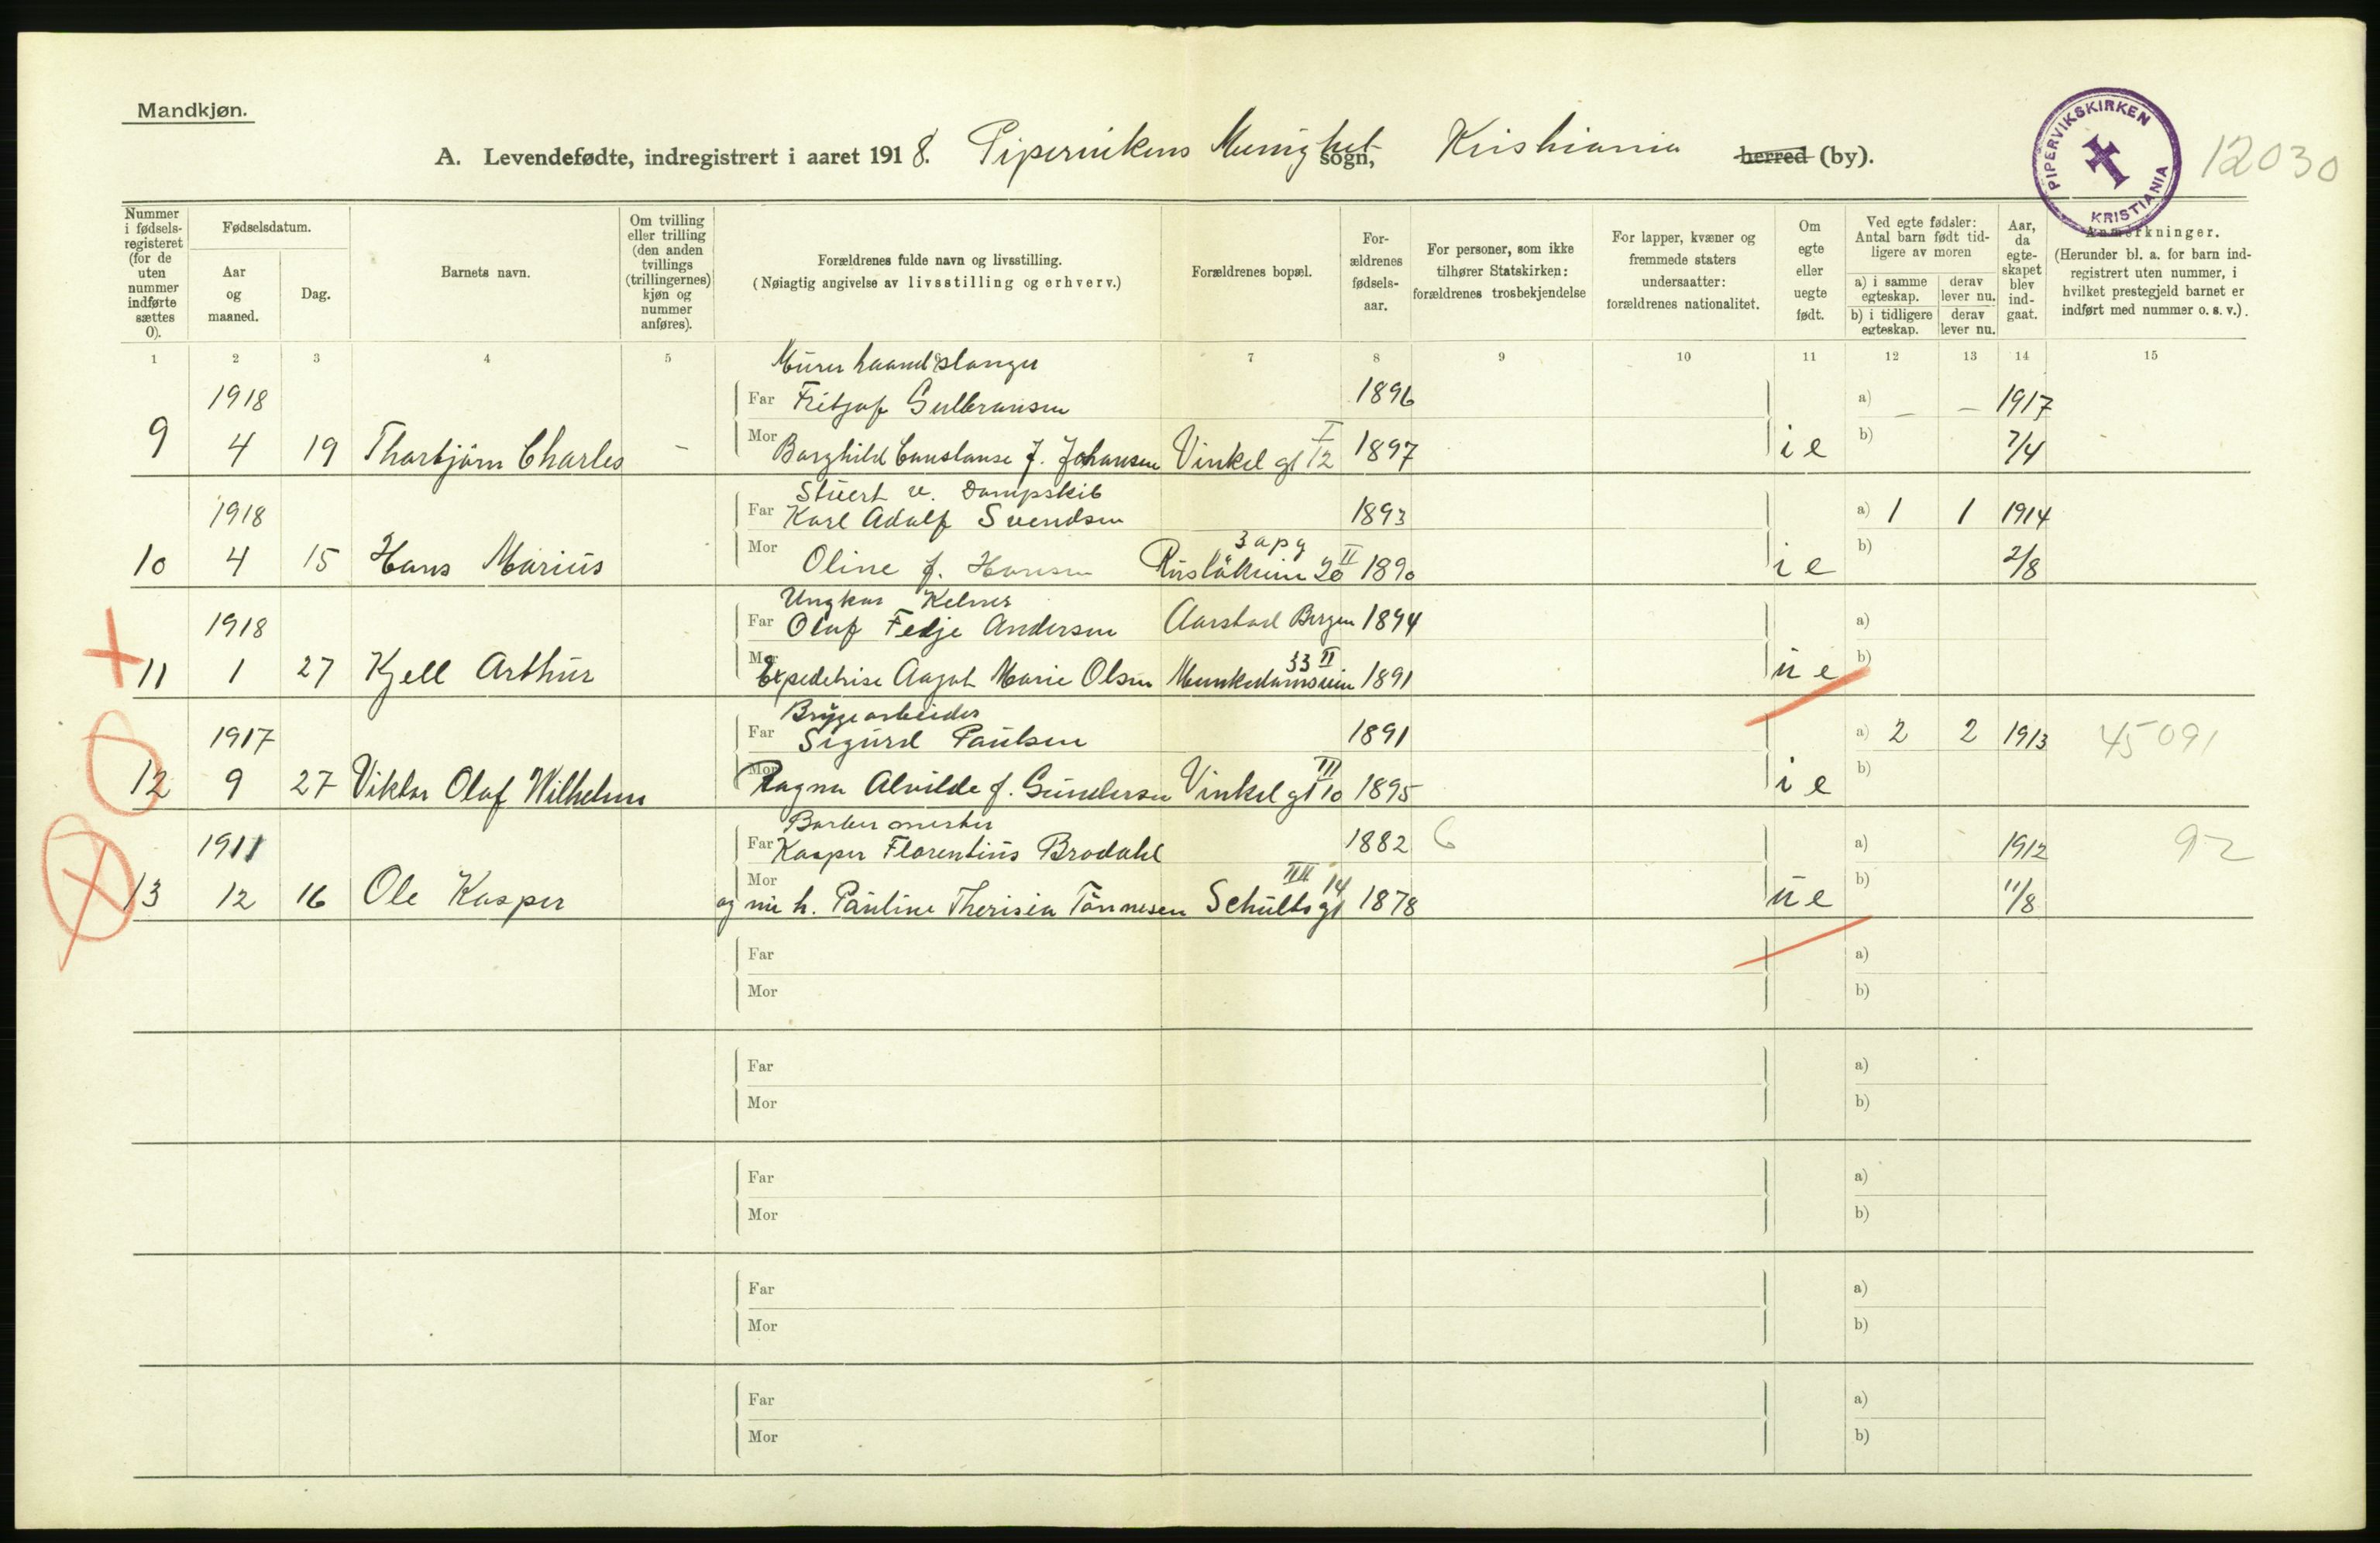 Mandkjøn.
A. Levendefødte, indregistrert i aaret 1918. Pipervikens Menighet sogn, Kristiania herred (by).
PIPERVIKSKIRKEN KRISTIANIA
12030
Nummer i fødsels-registeret (for de uten nummer indførte sættes 0).
Fødselsdatum.
Aar og maaned.
Dag.
Barnets navn.
Om tvilling eller trilling (den anden tvillings (trillingernes) kjøn og nummer anføres).
Forældrenes fulde navn og livsstilling.
(Nøiagtig angivelse av livsstilling og erhverv.)
Forældrenes bopæl.
For-ældrenes fødsels-aar.
For personer, som ikke tilhører Statskirken: forældrenes trosbekjendelse
For lapper, kvæner og fremmede staters undersaatter: forældrenes nationalitet.
Om egte eller uegte født.
Ved egte fødsler: Antal barn født tid-ligere av moren
a) i samme egteskap.
derav lever nu.
b) i tidligere egteskap.
derav lever nu.
Aar, da egte-skapet blev ind-gaat.
Anmerkninger.
(Herunder bl. a. for barn ind-registrert uten nummer, i hvilket prestegjeld barnet er indført med nummer o. s. v.).
1 2 3 4 5 6 7 8 9 10 11 12 13 14 15
Murer haandslanger
1918 Far Fritjof Gulbransen 1896 a) – – 1917
9 4 19 Thorbjörn Charles – Mor Borghild Constanse f. Johansen Vinkel gt 12 I 1897 ie b) 7/4
Stuert v. Dampskib
1918 Far Karl Adolf Svendsen 1893 a) 1 1 1914
10 4 15 Hans Marius Mor Oline f. Hansen Rusløkvein 20 II 3 apg 1890 ie b) 2/8
Ungkar Kelner
1918 Far Olaf Fedje Andersen Aarstad Bergen 1894 a)
11 1 27 Kjell Arthur Mor Expedetrise Aagot Marie Olsen Munkedamsvein 33 II 1891 ue b)
Bryggearbeider
1917 Far Sigurd Paulsen 1891 a) 2 2 1913 45091
12 9 27 Viktor Olaf Wilhelm Mor Ragna Alvilde f. Gundersen Vinkel gt 10 III 1895 ie b)
Barber mester
1911 Far Kasper Florentius Brodahl 1882 6 a) 1912 92
13 12 16 Ole Kasper Mor og nu h. Pauline Therisia Tönnesen Schultsgt 14 IIII 1878 ue b) 11/8
Far a)
Mor b)
Far a)
Mor b)
Far a)
Mor b)
Far a)
Mor b)
Far a)
Mor b)